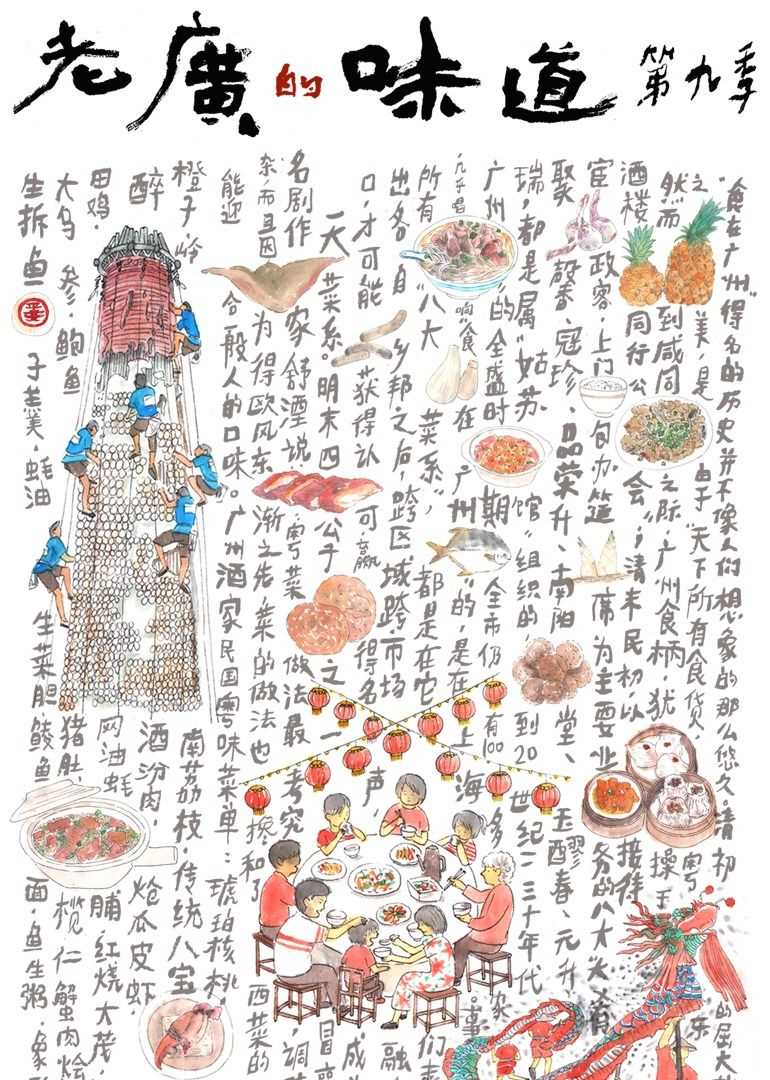 老廣的味道 第九季
“食在广州”得名的历史并不像人们想象的那么悠久。清初的屈大
之美,是由于“天下所有食货,粤东
然而到咸同之际,广州食柄,犹操于
酒楼同行公会”,清末民初,以接徕
宦政客,上门包办筵席为主要业务的八大大肴
聚馨、冠珍、品荣升、南阳堂、玉醪春、元升
瑞,都是属“姑苏馆”组织的,到20世纪二三十年代
广州”的全盛时期,全市仍有100多家
几乎唱响“食在广州”的,是在上海。事
所有“八大菜系”,都是在它们
出各自乡邦之后,跨区域跨市场融
口,才可能获得认可,赢得名声,成
一大菜系。明末四公子之一冒
名剧作家舒湮说:粤菜做法最考究,调
杂,而且因为得欧风东渐之先,菜的做法也搀和了西菜的
能迎合一般人的口味。广州酒家民国粤味菜单:琥珀核桃,
橙子,岭南荔枝,传统八宝
醉酒汾肉,炝瓜皮虾,
田鸡,网油蚝脯,红烧大茂,
大乌参,鲍鱼猪肚,榄仁蟹肉烩
生拆鱼子羹,蚝油生菜胆鲮鱼面,鱼生粥,象